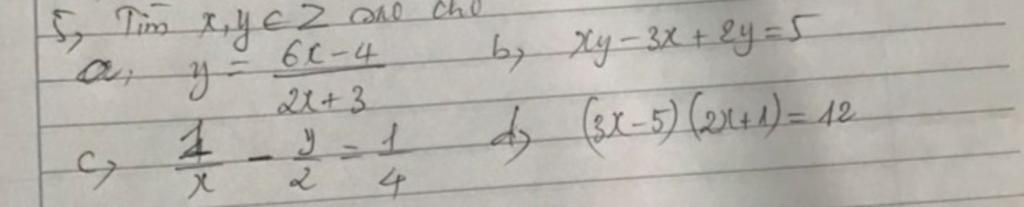 5, Tìm x, y ∈ Z sao cho
a, y = (6x-4)/(2x+3) b, xy - 3x + 2y = 5
c, 1/x - y/2 = 1/4 d, (3x-5)(2x+1) = 12